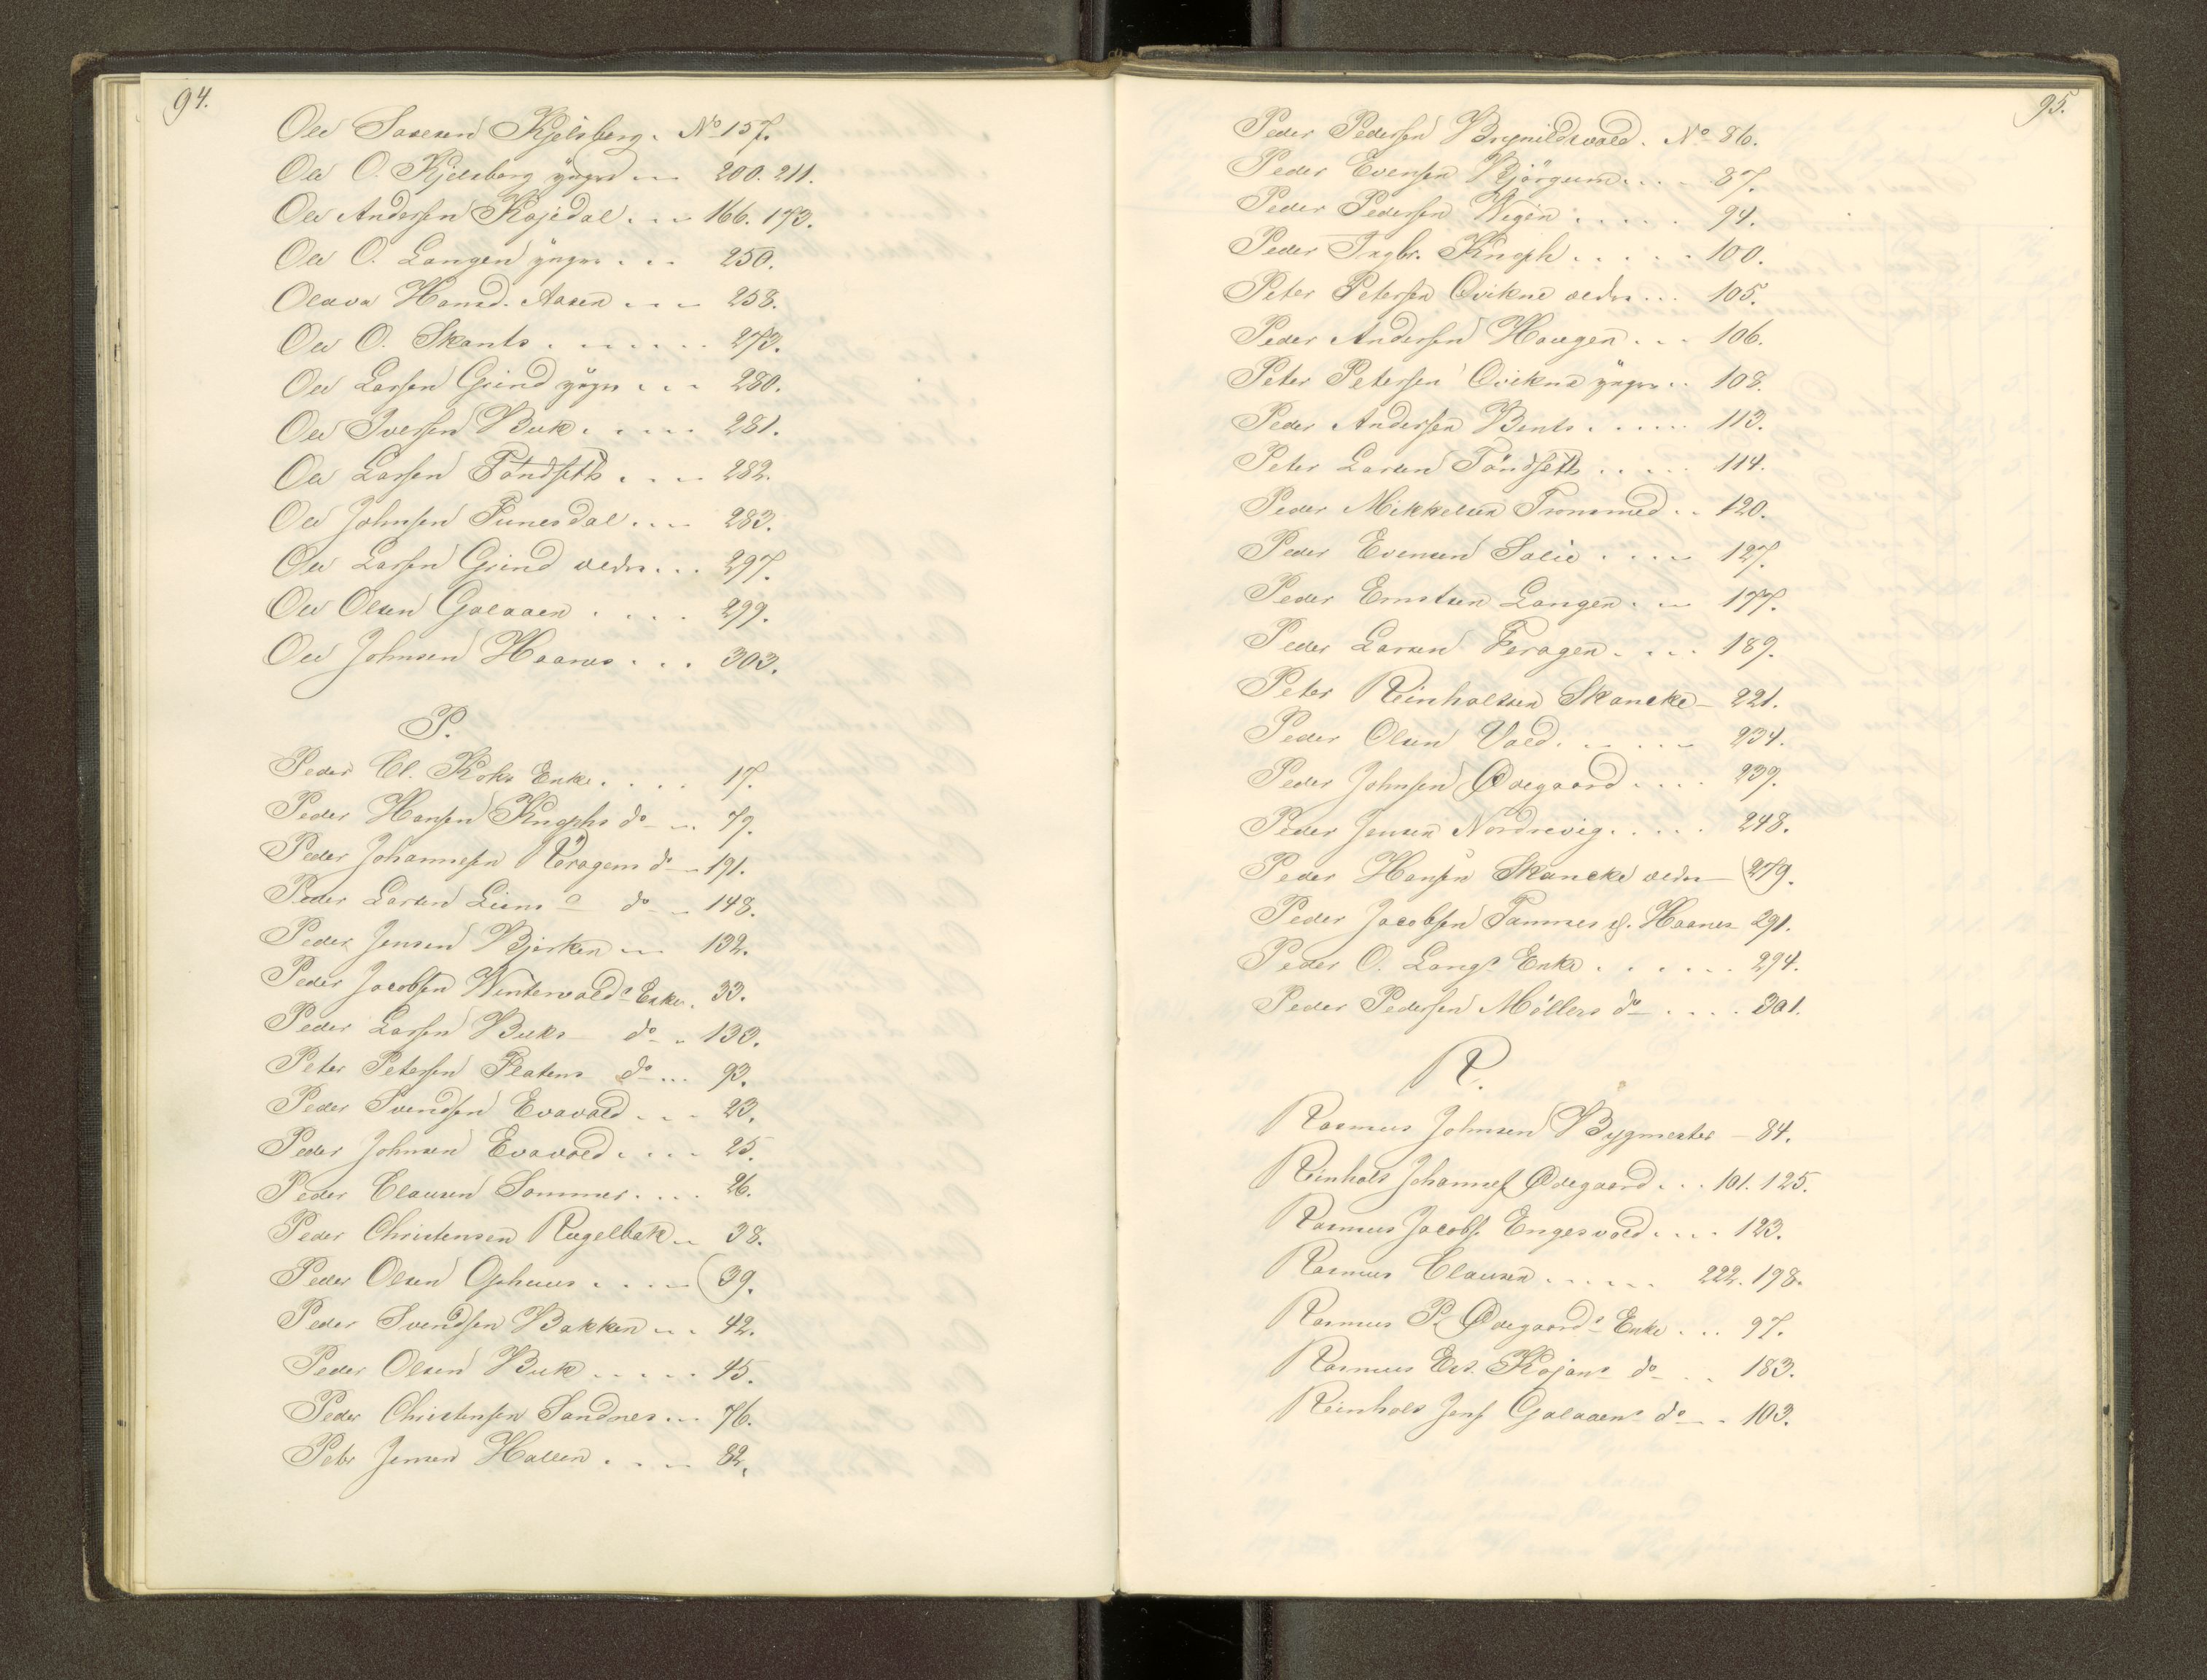 94.
Ole Larsen Kjelsberg. No 157.
Ole O. Kjelsberg yngre ... 200. 211.
Ole Andersen Kojedal ... 166. 173.
Ole O. Langen yngre ... 250.
Olava Hansd. Aasen ... 258.
Ole O. Skants ...... 273.
Ole Larsen Grind yngre ... 280.
Ole Iversen Buk .... 281.
Ole Larsen Tøndseth ... 282.
Ole Johnsen Funesdal ... 283.
Ole Larsen Grind ældre ... 297.
Ole Olsen Galaaen .... 299.
Ole Johnsen Haanes ... 303.
P.
Peder Cl. Koks Enke .... 17.
Peder Hansen Knophs do .. 79.
Peder Johannesen Feragens do .. 191.
Peder Larsen Liens do .. 148.
Peder Jensen Bjerken ... 132.
Peder Jacobsen Wintervolds Enke. 33.
Peder Larsen Buks do .. 133.
Peter Petersen Platens do ... 93.
Peder Svendsen Evavold ... 23.
Peder Johnsen Evavold .... 25.
Peder Clausen Sommer .... 26.
Peder Christensen Rugelbak .. 38.
Peder Olsen Ophuus .... (39.
Peder Svendsen Bakken ... 42.
Peder Olsen Buk ..... 45.
Peder Christensen Sandnes ... 76.
Peter Jensen Hallen .... 82.
95.
Peder Pedersen Brynildsvold. No 86.
Peder Evensen Bjørgum ... 87.
Peder Pedersen Wegen ..... 94.
Peder Ingbr. Knoph ..... 100.
Peter Petersen Qvikne ældre ... 105.
Peder Andersen Haugen ... 106.
Peter Petersen Qvikne yngre .. 108.
Peder Andersen Bents ..... 113.
Peter Larsen Tøndseth ..... 114.
Peder Mikkelsen Tronsmed .. 120.
Peder Evensen Solie .... 127.
Peder Erntsen Langen .. 177.
Peder Larsen Feragen .... 189.
Peter Reinholtsen Skancke - 221.
Peder Olsen Vold ..... 234.
Peder Johnsen Ødegaard .... 239.
Peder Jensen Nordrevig ..... 248.
Peder Hansen Skancke ældre - (279.
Peder Jacobsen Tamnes ell. Haanes 291.
Peder O. Langs Enke ...... 294.
Peder Pedersen Møllers do .... 301.
R.
Rasmus Johnsen Bygmester - 84.
Reinholt Johannes. Ødegaard ... 101. 125.
Rasmus Jacobs. Engesvold .... 123.
Rasmus Clausen ...... 222. 198.
Rasmus P. Ødegaards Enke ... 97.
Rasmus Kojans do .. 183.
Reinholt Jens. Galaaens do .. 103.